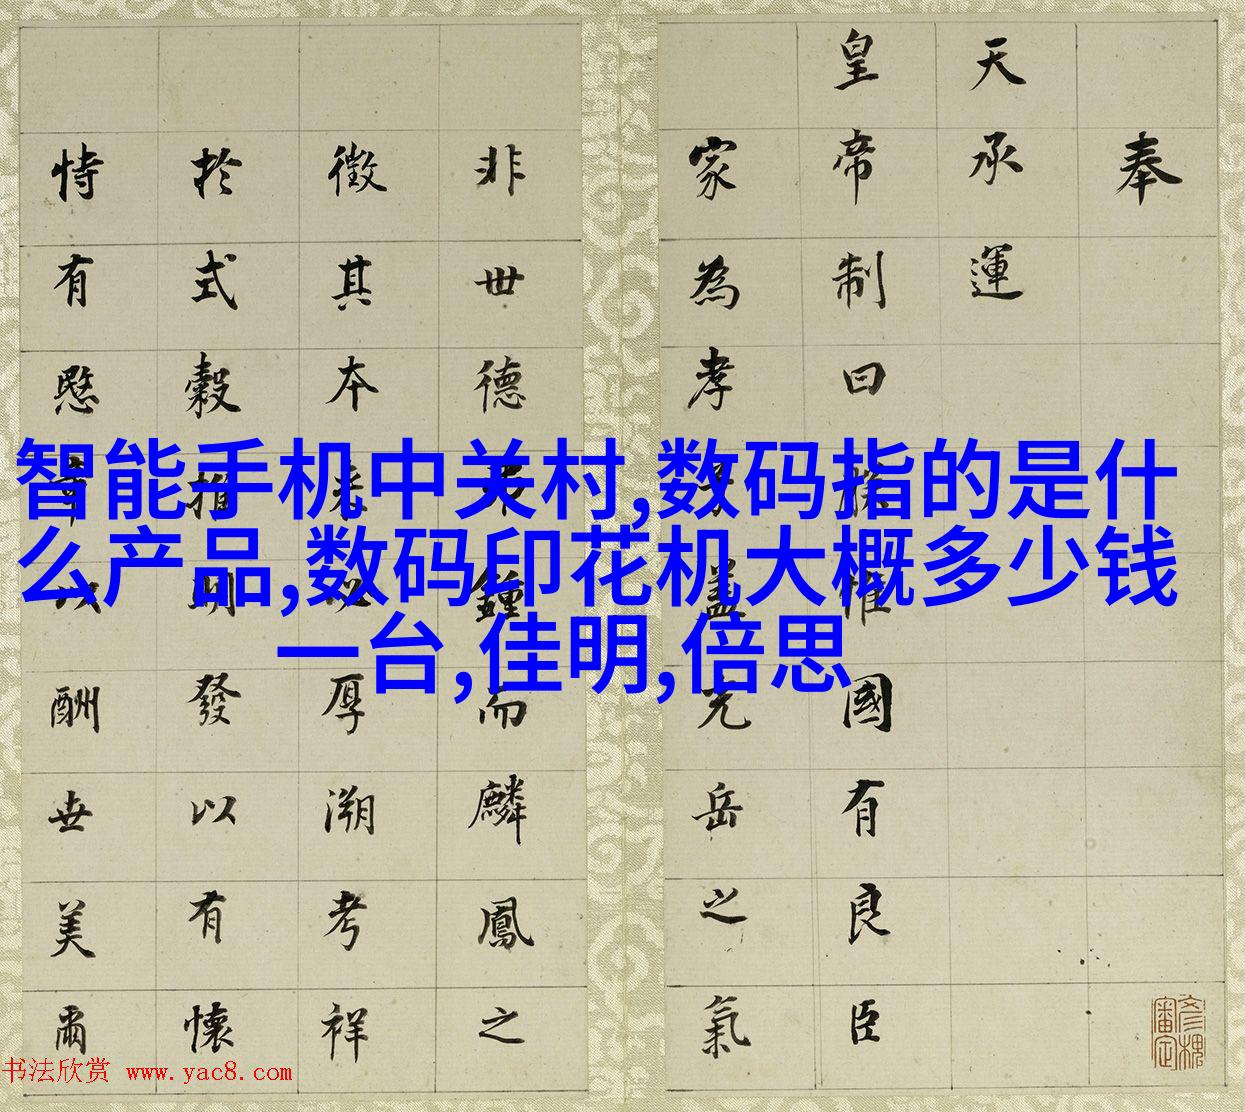 奉
天承運
皇帝制曰朕惟國有良臣
家為孝子蓋元岳之氣
非世德不鍾而麟鳳之
徵其本来必厚溯考祥
於式穀推明發以有懷
恃有愍章以酬世美爾
智能手机中关村,数码指的是什
么产品,数码印花机大概多少钱
一台,佳明,倍思
书法欣赏 www.yac8.com